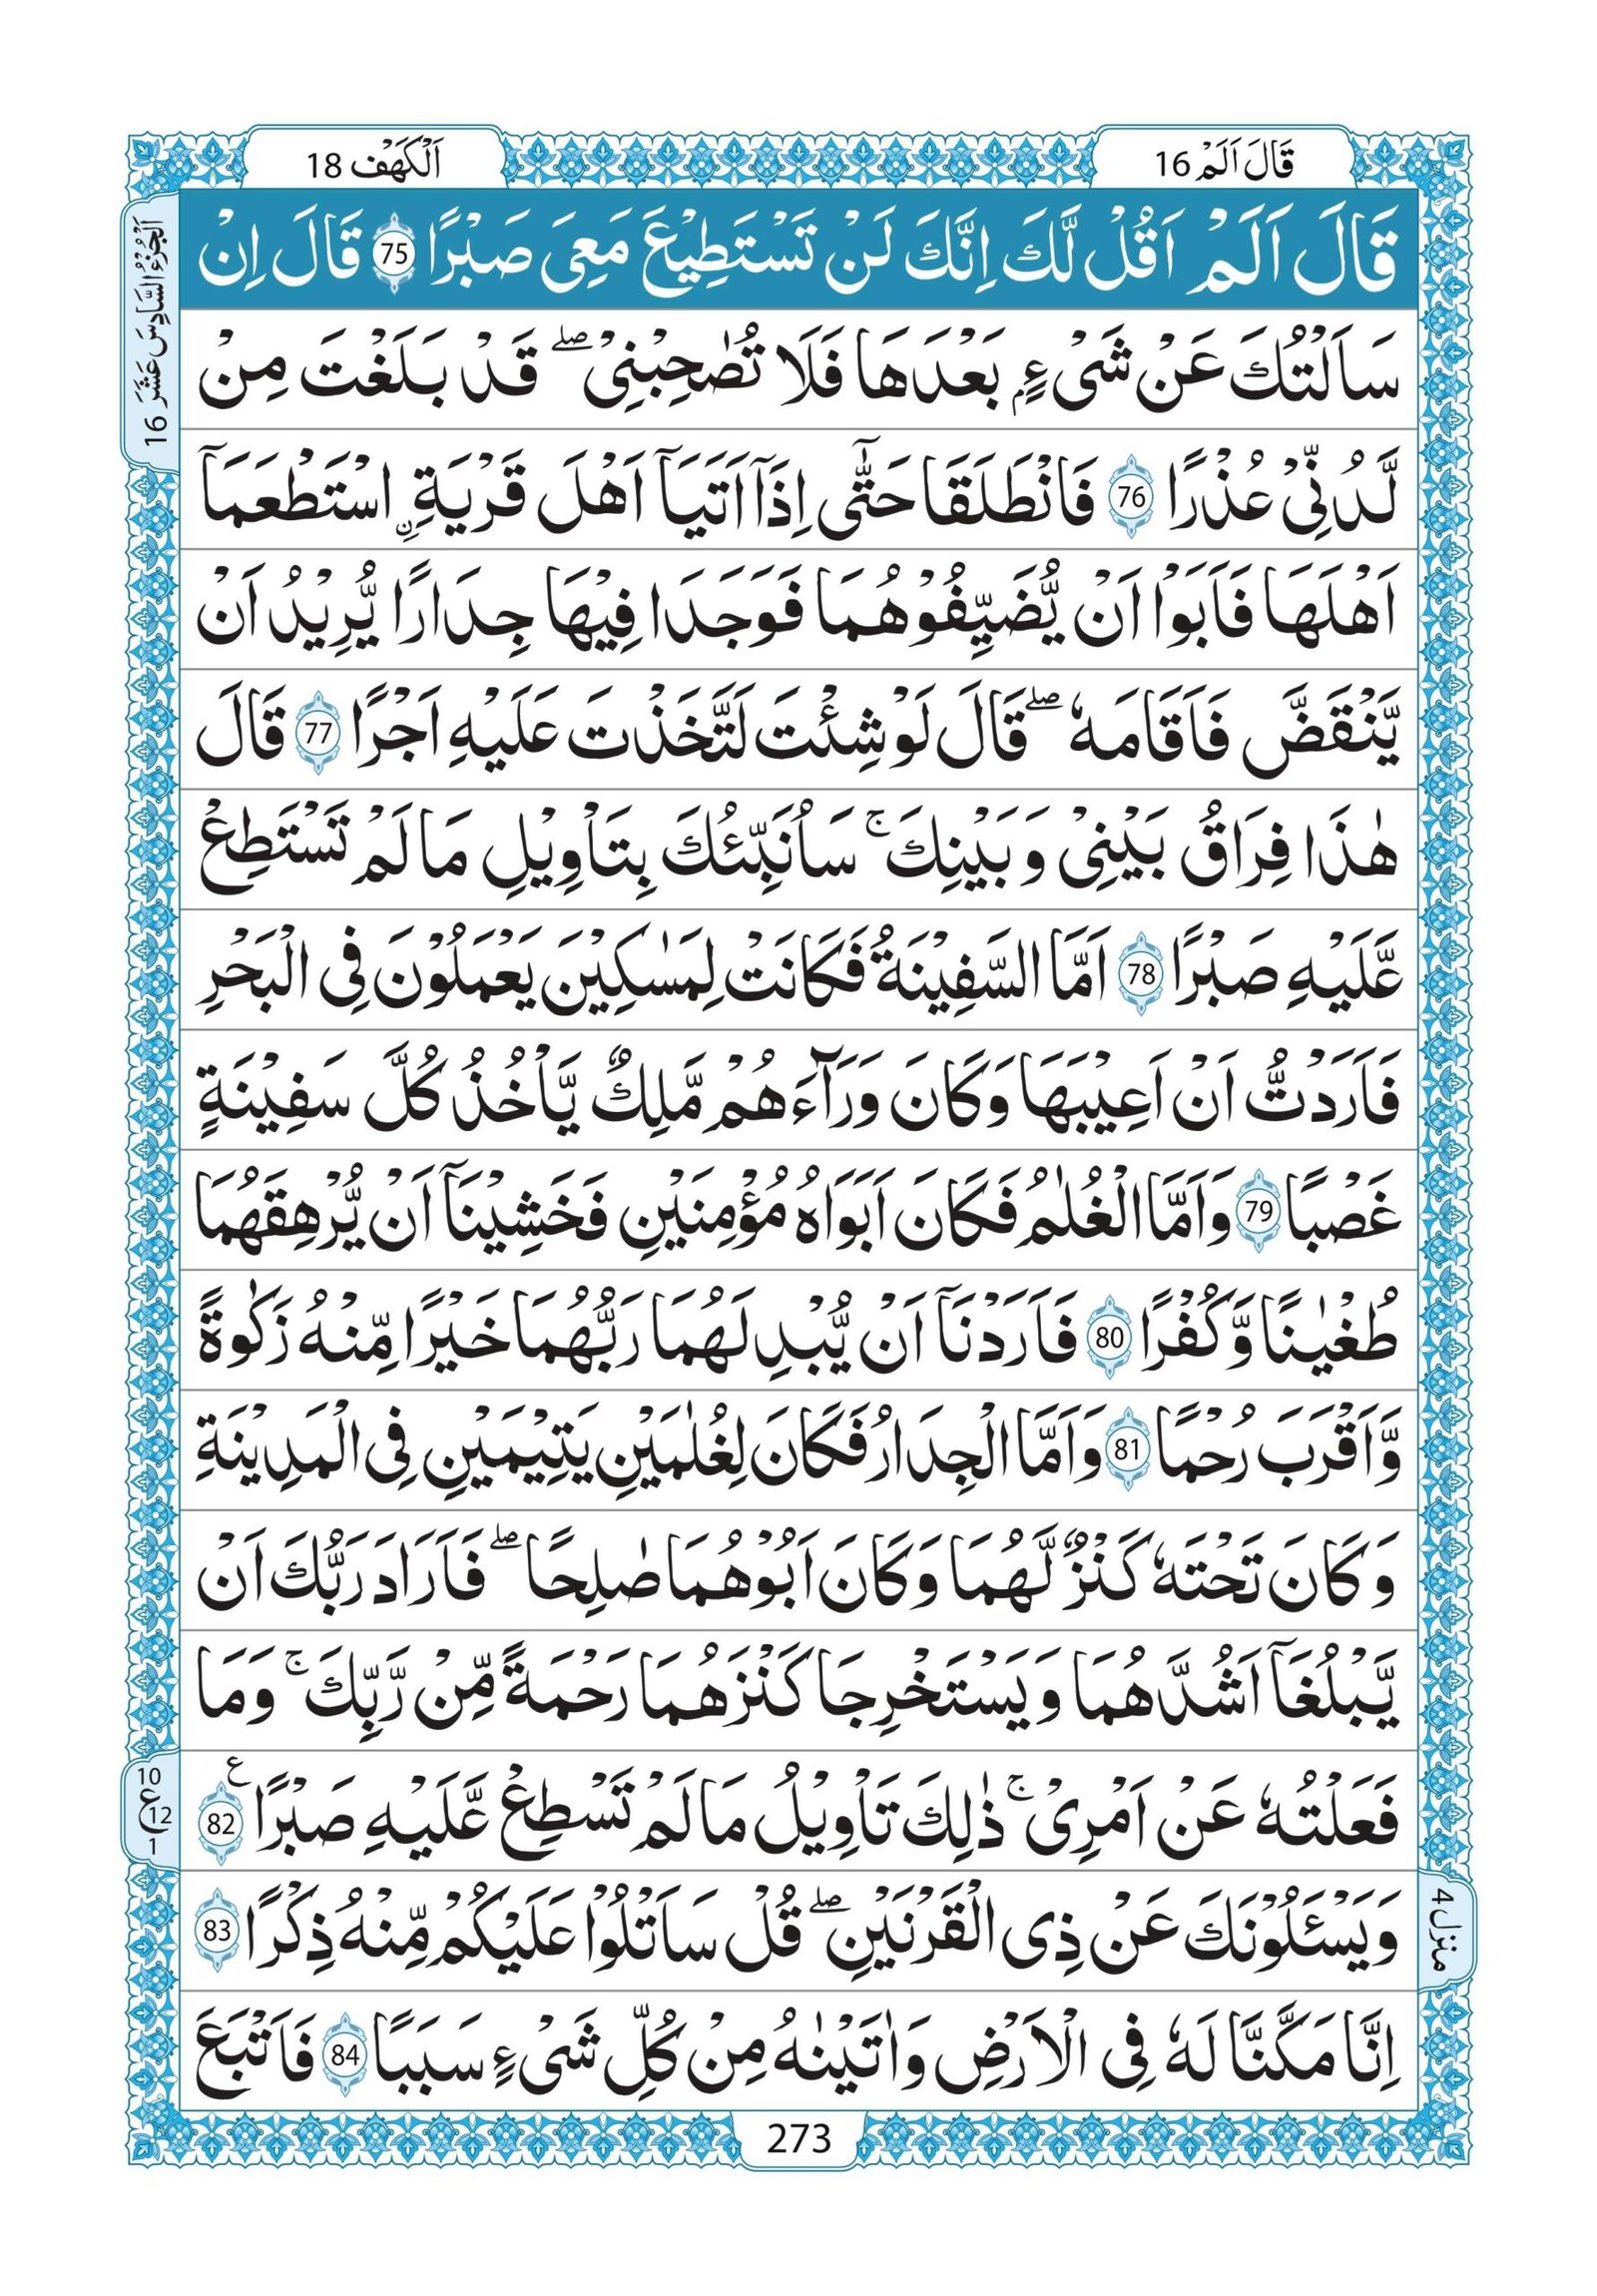 قَالَ اَلَمْ 16
اَلْكَهْف 18
اَلْجُزْءُ السَّادِسَ عَشَرَ 16
قَالَ اَلَمْ اَقُلْ لَّكَ اِنَّكَ لَنْ تَسْتَطِيْعَ مَعِىَ صَبْرًا 75 قَالَ اِنْ
سَاَلْتُكَ عَنْ شَىْءٍۭ بَعْدَهَا فَلَا تُصٰحِبْنِىْ ۖ قَدْ بَلَغْتَ مِنْ
لَّدُنِّىْ عُذْرًا 76 فَانْطَلَقَا حَتّٰٓى اِذَاۤ اَتَيَاۤ اَهْلَ قَرْيَةِ ۨ اسْتَطْعَمَاۤ
اَهْلَهَا فَاَبَوْا اَنْ يُّضَيِّفُوْهُمَا فَوَجَدَا فِيْهَا جِدَارًا يُّرِيْدُ اَنْ
يَّنْقَضَّ فَاَقَامَهٗ ۖ قَالَ لَوْ شِئْتَ لَتَّخَذْتَ عَلَيْهِ اَجْرًا 77 قَالَ
هٰذَا فِرَاقُ بَيْنِىْ وَبَيْنِكَ ۚ سَاُنَبِّئُكَ بِتَاْوِيْلِ مَا لَمْ تَسْتَطِعْ
عَّلَيْهِ صَبْرًا 78 اَمَّا السَّفِيْنَةُ فَكَانَتْ لِمَسٰكِيْنَ يَعْمَلُوْنَ فِى الْبَحْرِ
فَاَرَدْتُّ اَنْ اَعِيْبَهَا وَكَانَ وَرَآءَهُمْ مَّلِكٌ يَّاْخُذُ كُلَّ سَفِيْنَةٍ
غَصْبًا 79 وَاَمَّا الْغُلٰمُ فَكَانَ اَبَوَاهُ مُؤْمِنَيْنِ فَخَشِيْنَاۤ اَنْ يُّرْهِقَهُمَا
طُغْيٰنًا وَّكُفْرًا 80 فَاَرَدْنَاۤ اَنْ يُّبْدِلَهُمَا رَبُّهُمَا خَيْرًا مِّنْهُ زَكٰوةً
وَّاَقْرَبَ رُحْمًا 81 وَاَمَّا الْجِدَارُ فَكَانَ لِغُلٰمَيْنِ يَتِيْمَيْنِ فِى الْمَدِيْنَةِ
وَكَانَ تَحْتَهٗ كَنْزٌ لَّهُمَا وَكَانَ اَبُوْهُمَا صٰلِحًا ۖ فَاَرَادَ رَبُّكَ اَنْ
يَّبْلُغَاۤ اَشُدَّهُمَا وَيَسْتَخْرِجَا كَنْزَهُمَا رَحْمَةً مِّنْ رَّبِّكَ ۚ وَمَا
فَعَلْتُهٗ عَنْ اَمْرِىْ ۚ ذٰلِكَ تَاْوِيْلُ مَا لَمْ تَسْطِعْ عَّلَيْهِ صَبْرًا ع 82
10 ع 12 1
وَيَسْئَلُوْنَكَ عَنْ ذِى الْقَرْنَيْنِ ۖ قُلْ سَاَتْلُوْا عَلَيْكُمْ مِّنْهُ ذِكْرًا 83
منزل 4
اِنَّا مَكَّنَّا لَهٗ فِى الْاَرْضِ وَاٰتَيْنٰهُ مِنْ كُلِّ شَىْءٍ سَبَبًا 84 فَاَتْبَعَ
273